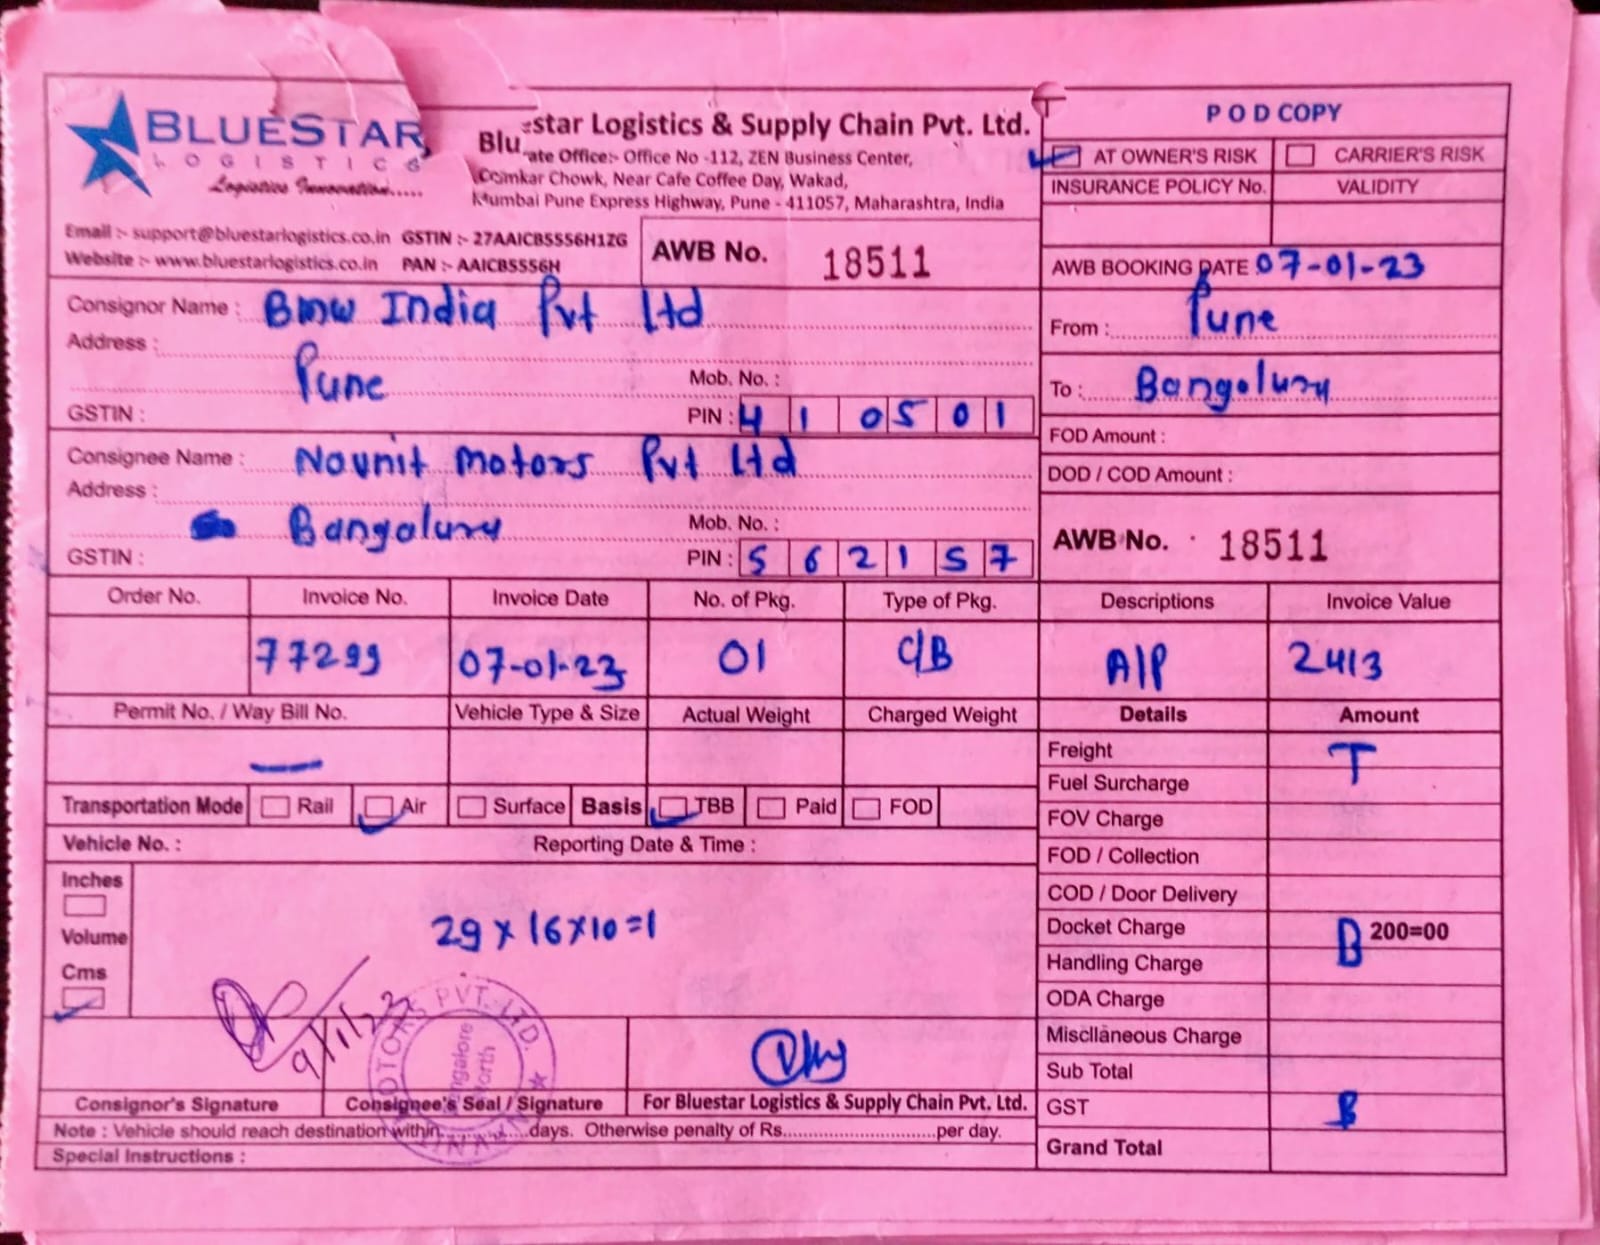 BLUESTAR
LOGISTICS
Logistics Innovation.....
Email :- support@bluestarlogistics.co.in GSTIN :- 27AAICB5556H1ZG
Website :- www.bluestarlogistics.co.in PAN :- AAICB5556H
Blu star Logistics & Supply Chain Pvt. Ltd.
ate Office:- Office No -112, ZEN Business Center,
Near Cafe Coffee Day, Wakad,
Mumbai Pune Express Highway, Pune - 411057, Maharashtra, India
AWB No. 18511
POD COPY
AT OWNER'S RISK CARRIER'S RISK
INSURANCE POLICY No. VALIDITY
AWB BOOKING DATE 07-01-23
From : Pune
To : Bangalury
FOD Amount :
DOD / COD Amount :
AWB No. 18511
Consignor Name : Bmw India Pvt Ltd
Address :
Pune Mob. No. :
GSTIN : PIN : 410501
Consignee Name : Novnit motors Pvt Ltd
Address :
Bangalury Mob. No. :
GSTIN : PIN : 562157
Order No. Invoice No. Invoice Date No. of Pkg. Type of Pkg. Descriptions Invoice Value
77299 07-01-23 01 C/B A/P 2413
Permit No. / Way Bill No. Vehicle Type & Size Actual Weight Charged Weight Details Amount
—
Transportation Mode Rail Air Surface Basis TBB Paid FOD
Vehicle No. : Reporting Date & Time :
Inches
Volume
Cms
29 x 16 x 10 = 1
Freight T
Fuel Surcharge
FOV Charge
FOD / Collection
COD / Door Delivery
Docket Charge 200=00
Handling Charge B
ODA Charge
Miscllaneous Charge
Sub Total
GST B
Grand Total
9/1/23
MOTORS PVT. LTD.
Bangalore
North
Consignor's Signature Consignee's Seal / Signature For Bluestar Logistics & Supply Chain Pvt. Ltd.
Note : Vehicle should reach destination within..............days. Otherwise penalty of Rs..............................per day.
Special Instructions :